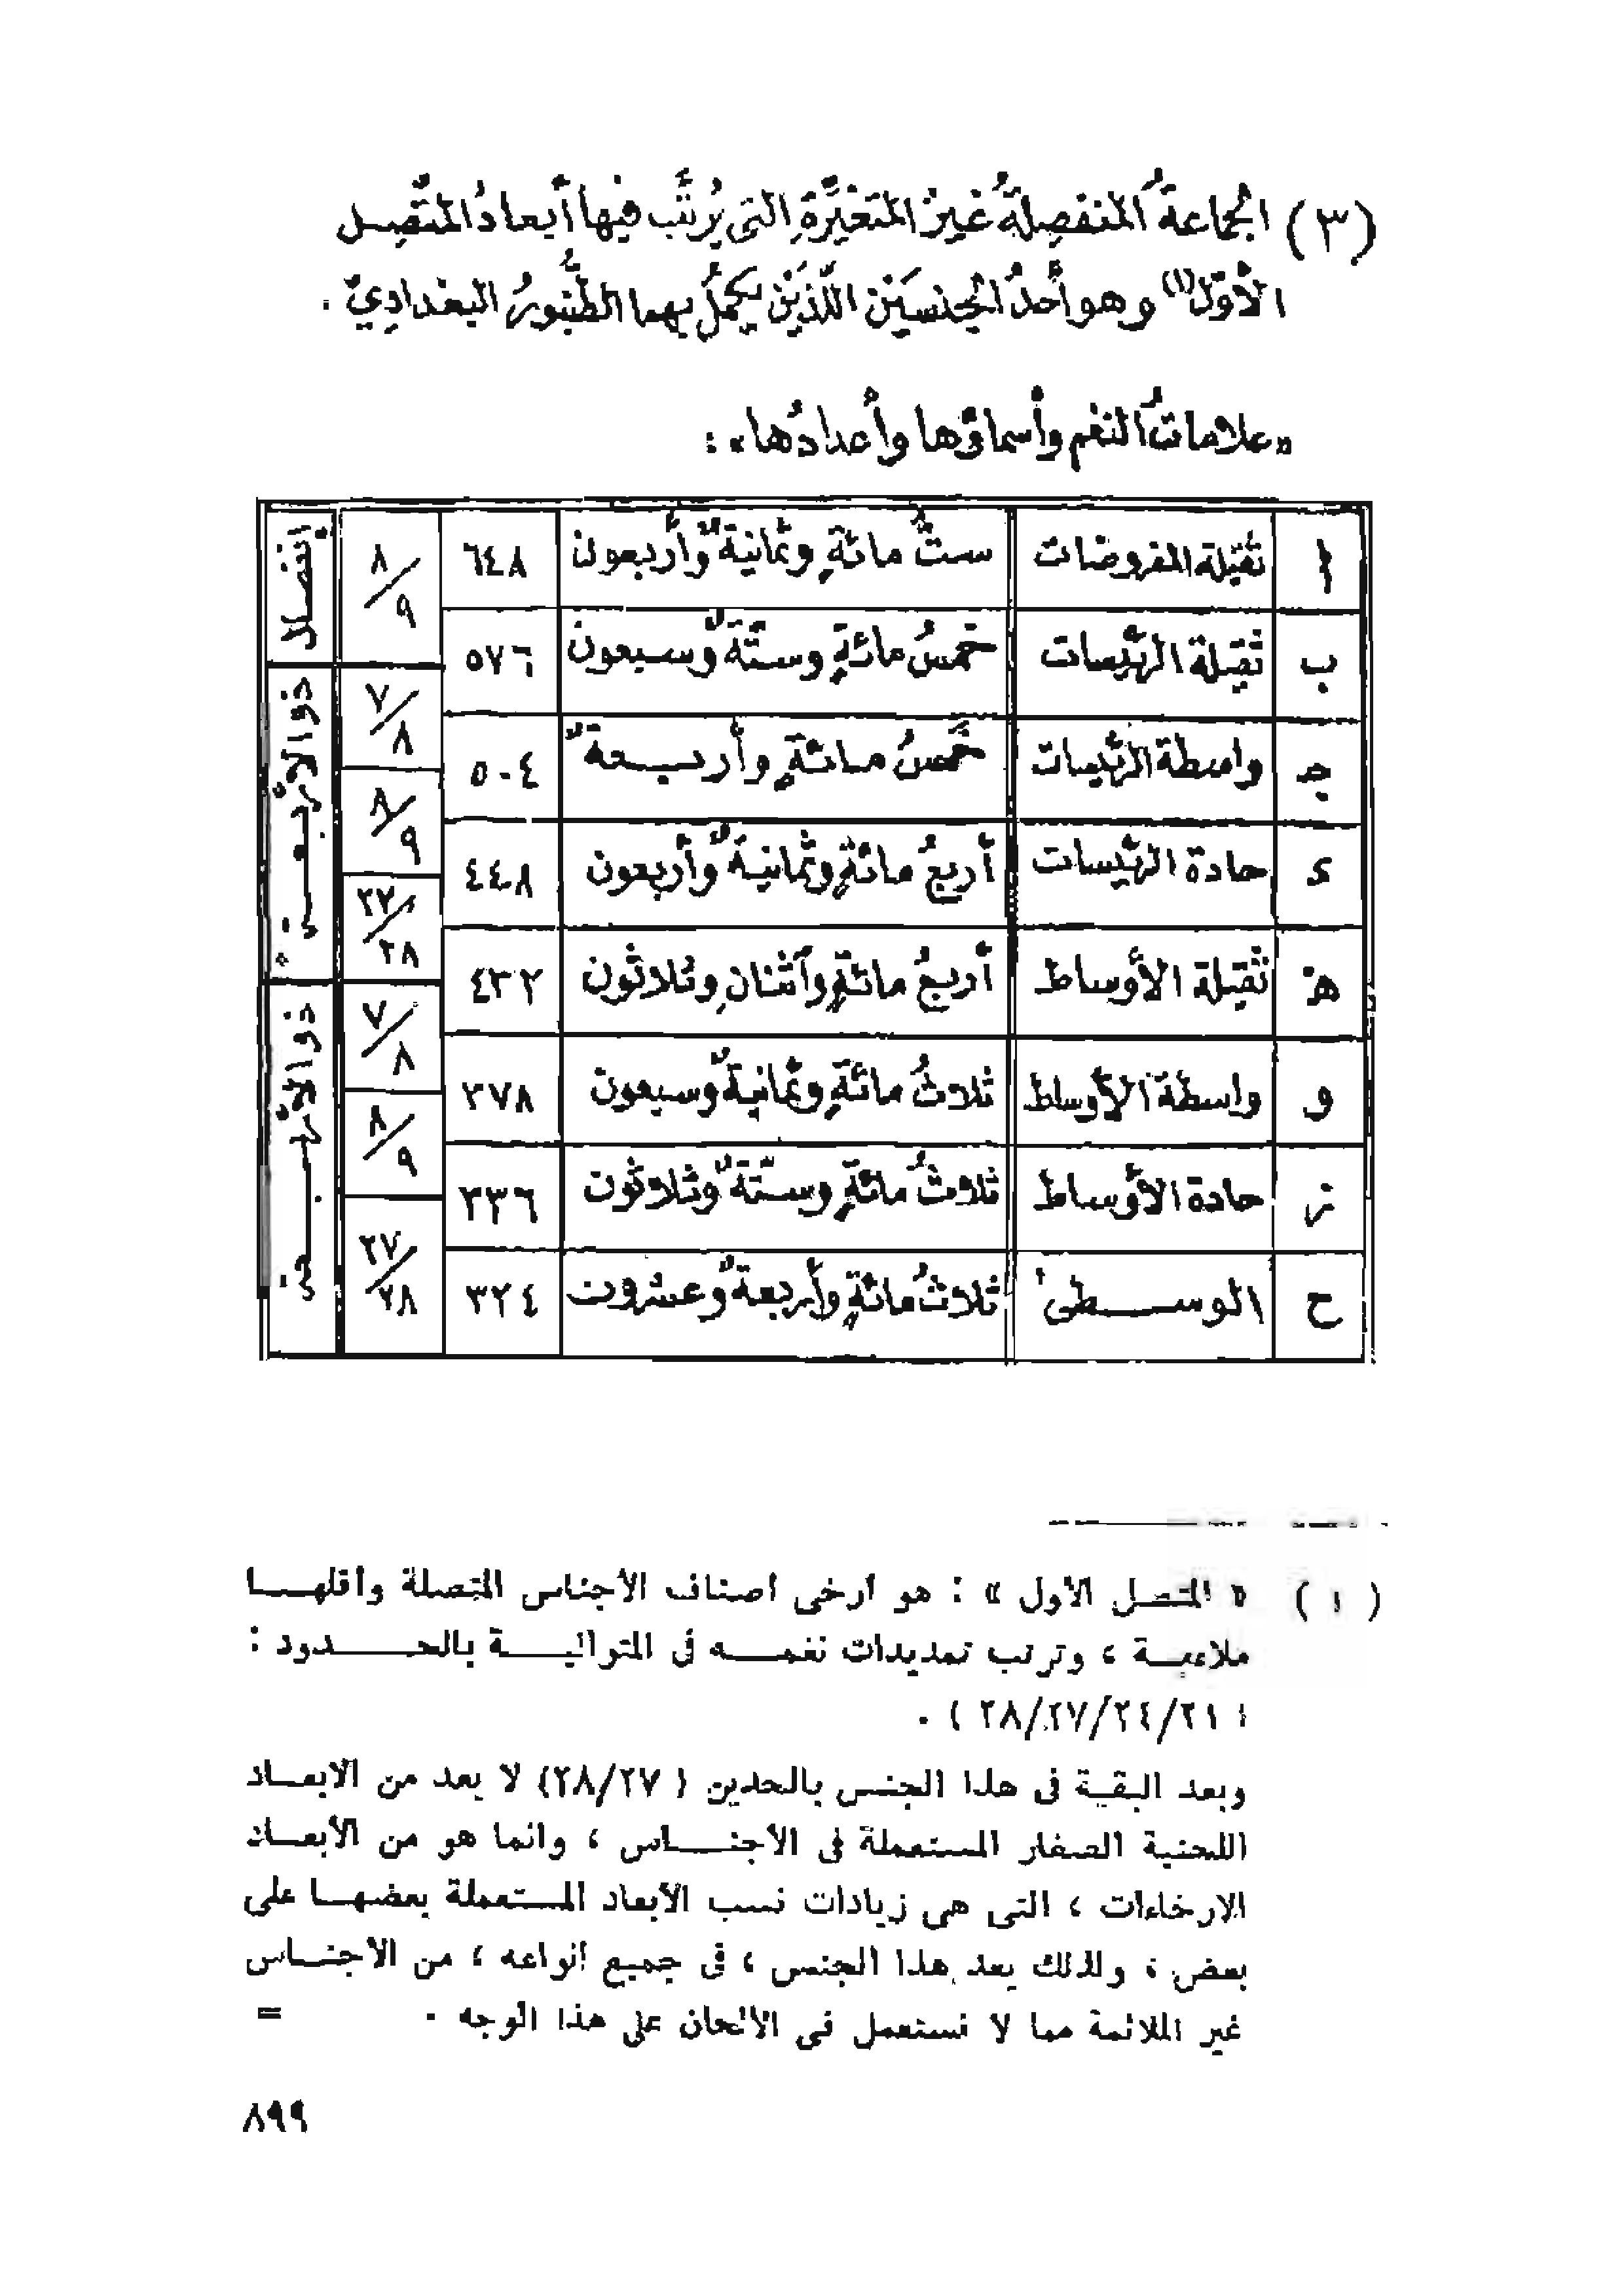 (٣) الجماعةُ المنفصِلةُ غيرُ المتغيِّرةِ التى يُرتَّب فيها أبعادُ المتّصِل
الأوّل(١) وهو أحدُ الجنسَيْن اللّذَيْن يكمُلُ بهما الطُّنبُورُ البغدادِيّ .
«علاماتُ النغم وأسماؤها وأعدادُها» :
ا ثقيلة المفروضات ستُّ مائةٍ وثمانيةٌ وأربعون ٦٤٨
ب ثقيلة الرئيسات خمسُ مائةٍ وستّةٌ وسبعون ٥٧٦
ج واسطة الرئيسات خمسُ مائةٍ وأربعةٌ ٥٠٤
د حادة الرئيسات أربعُ مائةٍ وثمانيةٌ وأربعون ٤٤٨
هـ ثقيلة الأوساط أربعُ مائةٍ وآثنانِ وثلاثون ٤٣٢
و واسطة الأوساط ثلاثُ مائةٍ وثمانيةٌ وسبعون ٣٧٨
ز حادة الأوساط ثلاثُ مائةٍ وستّةٌ وثلاثون ٣٣٦
ح الوسطىٰ ثلاثُ مائةٍ وأربعةٌ وعشرون ٣٢٤
٨/٩
٧/٨
٨/٩
٢٧/٢٨
٧/٨
٨/٩
٢٧/٢٨
إنفصال
ذو الأربعة
ذو الأربعة
( ١ ) « المتصل الأول » : هو أرخى أصناف الأجناس المتصلة وأقلها
ملاءمة ، وترتب تمديدات نغمه فى المتوالية بالحدود :
( ٢٨/٢٧/٢٤/٢١ ) .
وبعد البقية فى هذا الجنس بالحدين ( ٢٨/٢٧) لا يعد من الأبعاد
اللحنية الصغار المستعملة فى الأجناس ، وانما هو من الأبعاد
الارخاءات ، التى هى زيادات نسب الأبعاد المستعملة بعضها على
بعض ، ولذلك يعد هذا الجنس ، فى جميع أنواعه ، من الأجناس
غير الملائمة مما لا تستعمل فى الألحان على هذا الوجه . =
٨٩٩